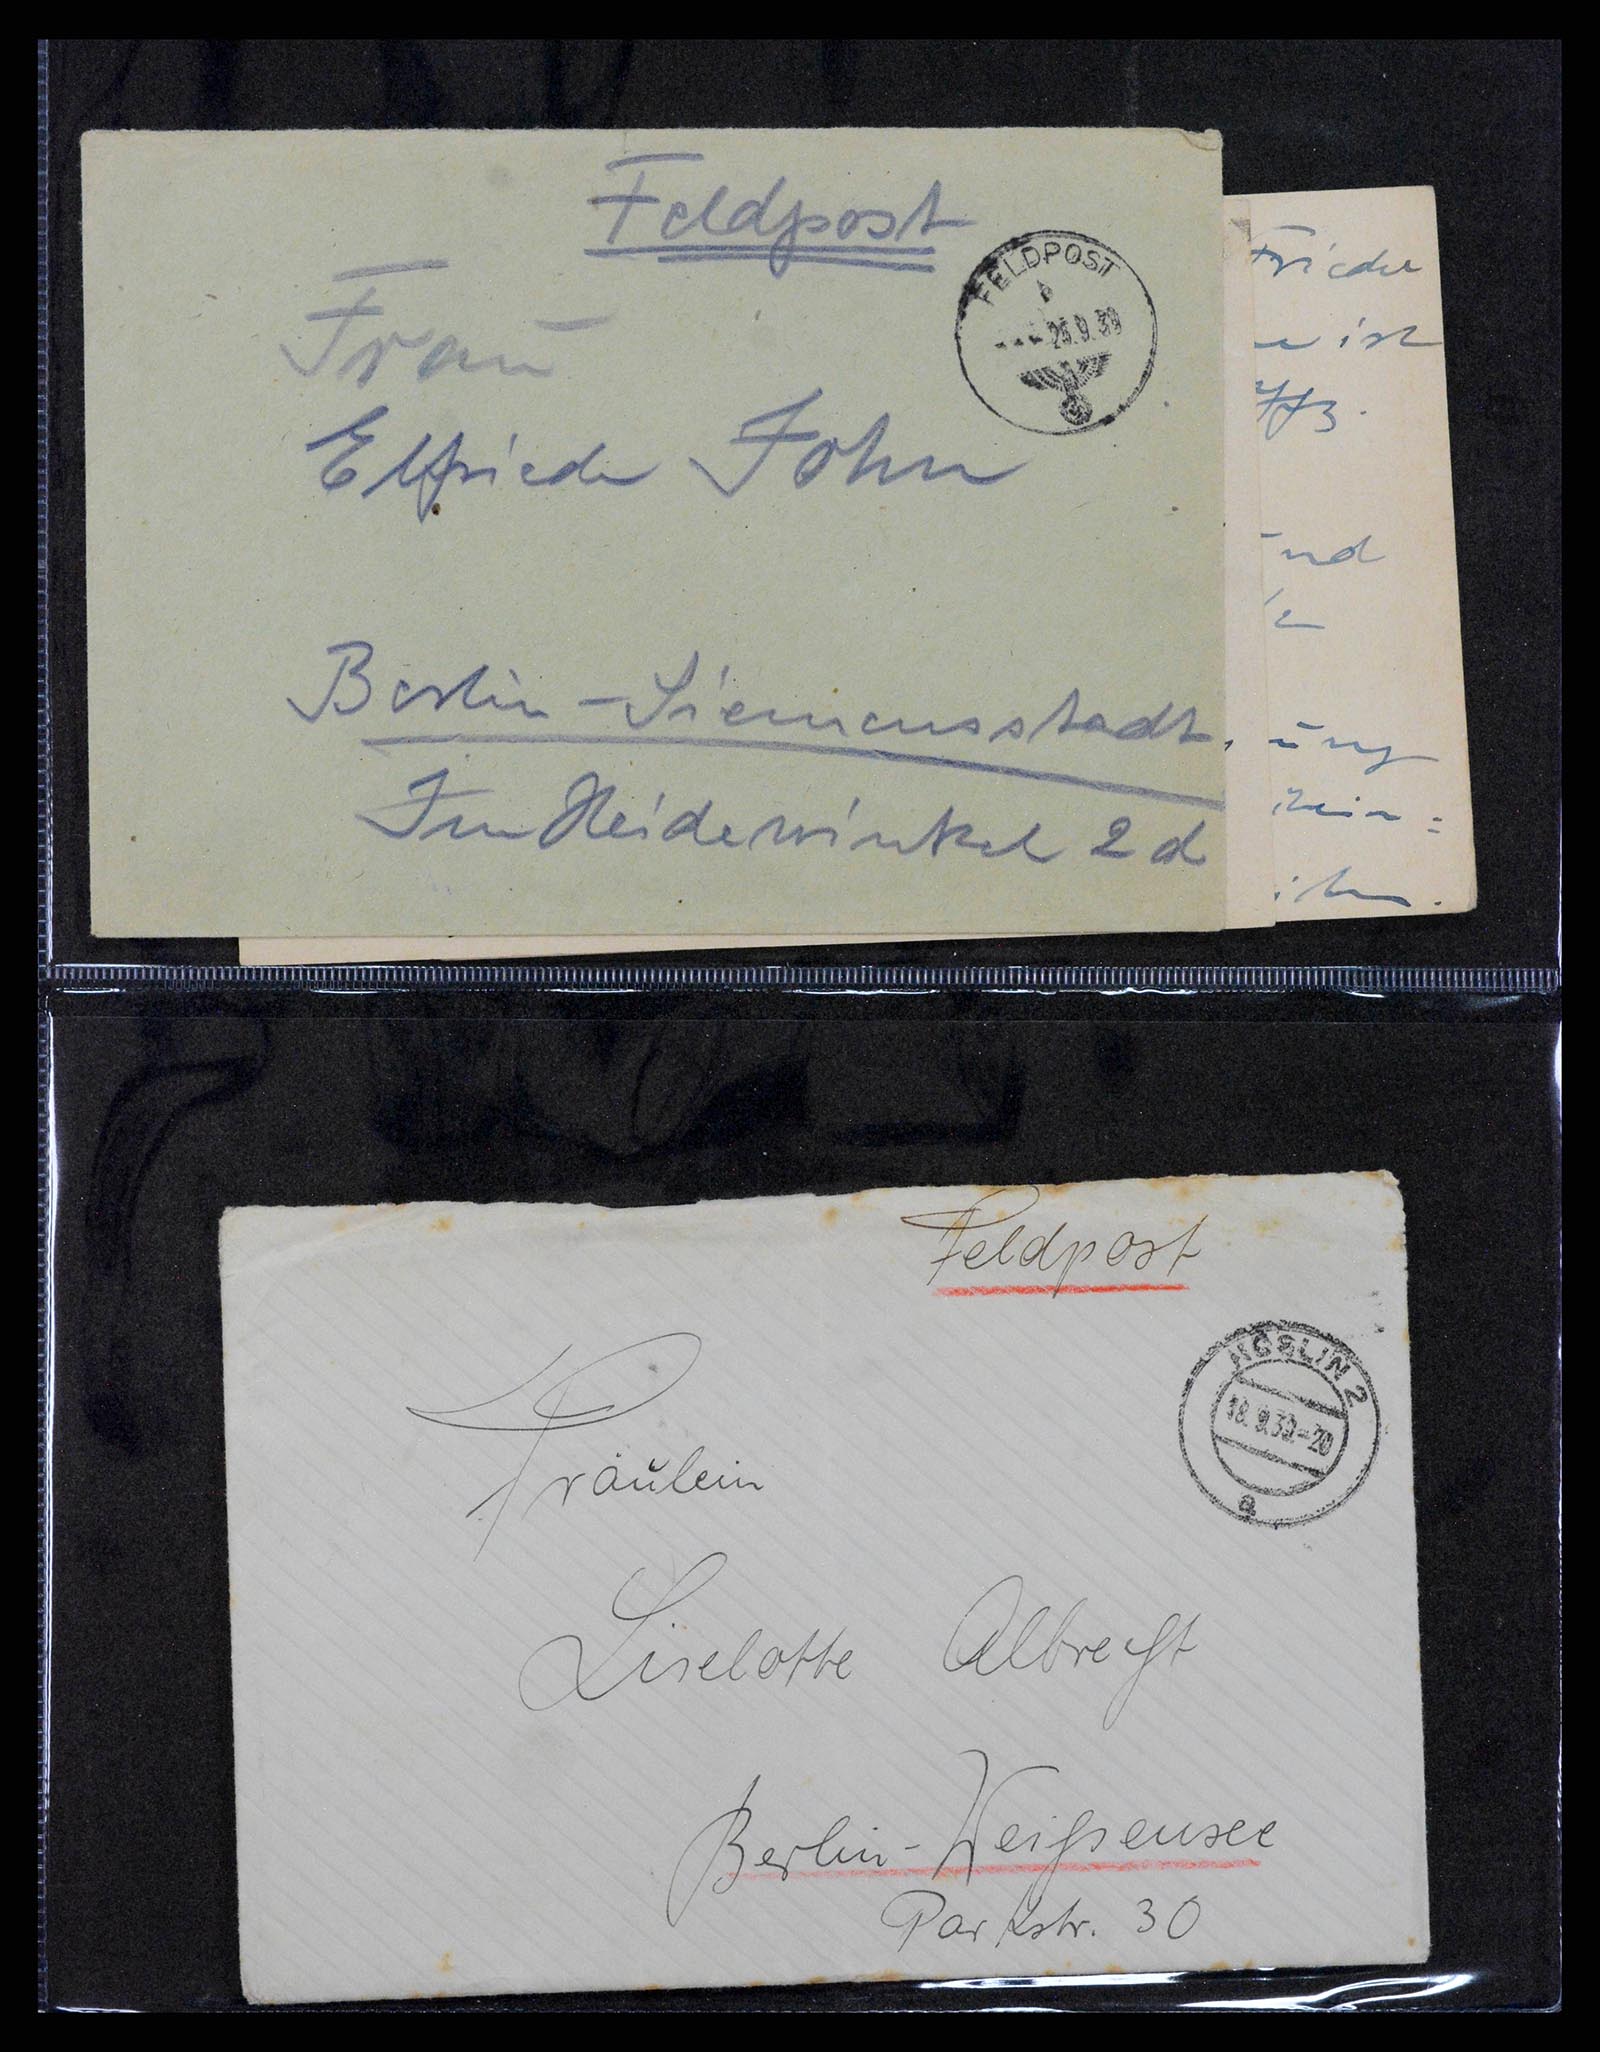 Feldpost
FELDPOST
b
- - - 26.9.39
Frau
Elfriede John
Berlin-Siemensstadt,
Im Heidewinkel 2d
Friedel
ist
und
ung
Feldpost
KÖSLIN 2
18.9.39.-20
a
Fräulein
Liselotte Albrecht
Berlin-Weißensee
Parkstr. 30